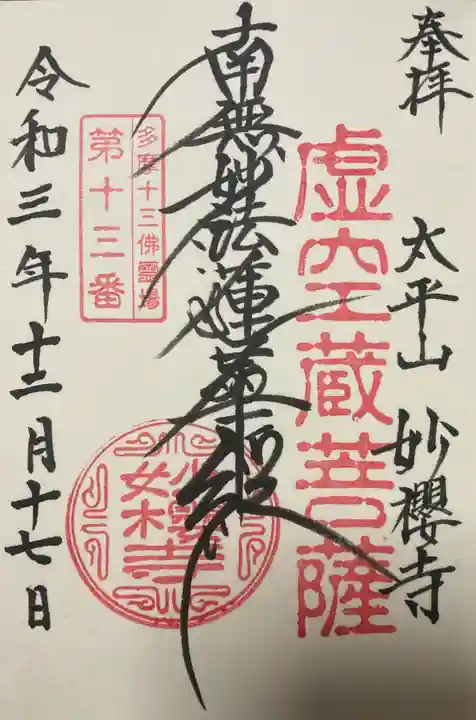 奉拝
太平山 妙櫻寺
虚空蔵菩薩
南無妙法蓮華経
多摩十三佛霊場
第十三番
妙櫻寺
令和三年十二月十七日